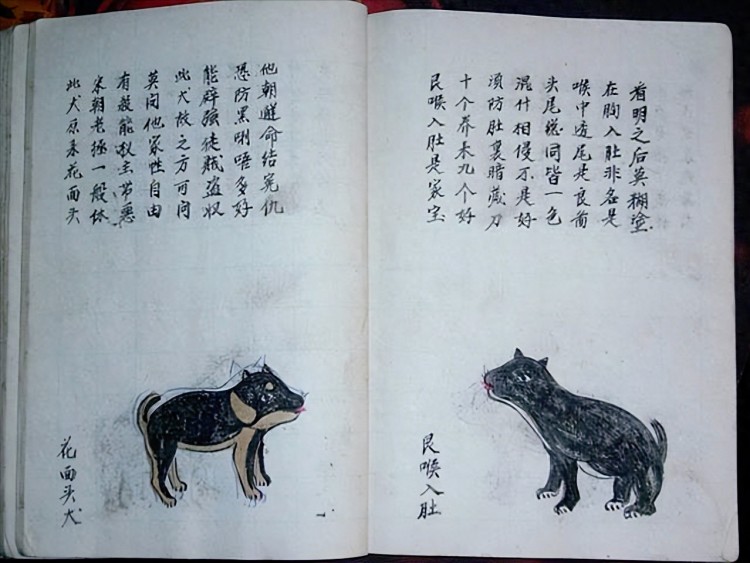 此犬原来花面头
宋朝老拯一般体
有能主带恶
莫问他家性自由
此犬故之方可问
能辟强徒贼盗収
恐防黑唎唔多好
他朝命结冤仇
花面头犬
艮喉入肚是家宝
十个养来九个好
须防肚裏暗藏刀
混什相侵不是好
头尾总同皆一色
喉中透尾是良苗
在胸入肚非名是
看明之后莫糊塗
艮喉入肚